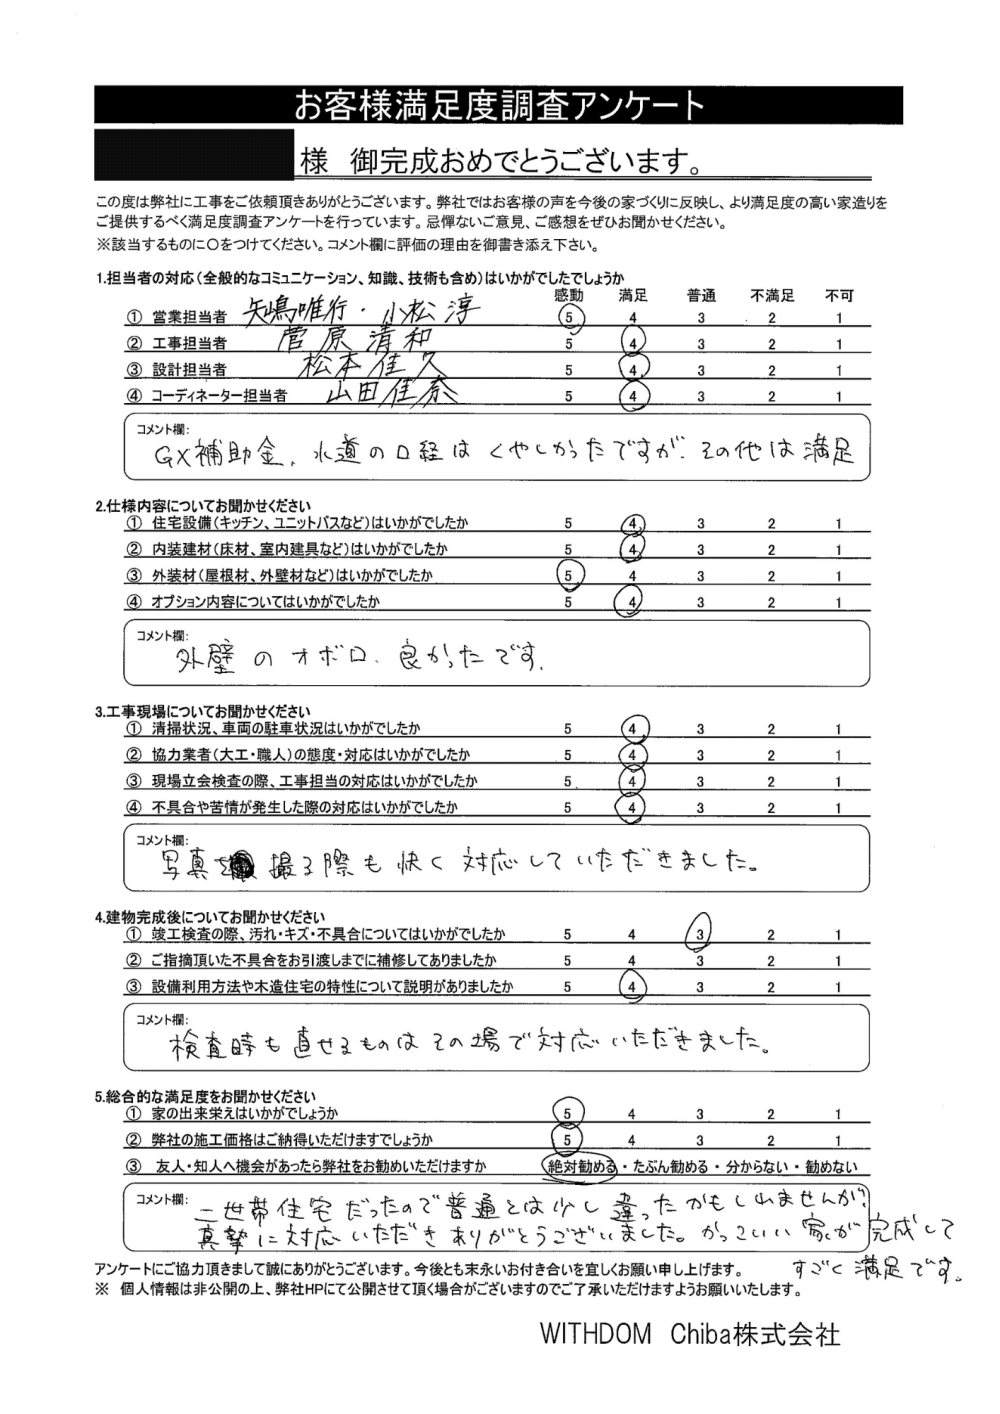 お客様満足度調査アンケート
様 御完成おめでとうございます。
この度は弊社に工事をご依頼頂きありがとうございます。弊社ではお客様の声を今後の家づくりに反映し、より満足度の高い家造りを
ご提供するべく満足度調査アンケートを行っています。忌憚ないご意見、ご感想をぜひお聞かせください。
※該当するものに〇をつけてください。コメント欄に評価の理由を御書き添え下さい。
1.担当者の対応(全般的なコミュニケーション、知識、技術も含め)はいかがでしたでしょうか
感動 満足 普通 不満足 不可
① 営業担当者 矢嶋唯行・小松淳 5 4 3 2 1
② 工事担当者 菅原清和 5 4 3 2 1
③ 設計担当者 松本佳久 5 4 3 2 1
④ コーディネーター担当者 山田佳奈 5 4 3 2 1
コメント欄:
GX補助金、水道の口経はくやしかったですが、その他は満足
2.仕様内容についてお聞かせください
① 住宅設備(キッチン、ユニットバスなど)はいかがでしたか 5 4 3 2 1
② 内装建材(床材、室内建具など)はいかがでしたか 5 4 3 2 1
③ 外装材(屋根材、外壁材など)はいかがでしたか 5 4 3 2 1
④ オプション内容についてはいかがでしたか 5 4 3 2 1
コメント欄:
外壁のオボロ、良かったです.
3.工事現場についてお聞かせください
① 清掃状況、車両の駐車状況はいかがでしたか 5 4 3 2 1
② 協力業者(大工・職人)の態度・対応はいかがでしたか 5 4 3 2 1
③ 現場立会検査の際、工事担当の対応はいかがでしたか 5 4 3 2 1
④ 不具合や苦情が発生した際の対応はいかがでしたか 5 4 3 2 1
コメント欄:
写真を撮る際も快く対応していただきました。
4.建物完成後についてお聞かせください
① 竣工検査の際、汚れ・キズ・不具合についてはいかがでしたか 5 4 3 2 1
② ご指摘頂いた不具合をお引渡しまでに補修してありましたか 5 4 3 2 1
③ 設備利用方法や木造住宅の特性について説明がありましたか 5 4 3 2 1
コメント欄:
検査時も直せるものはその場で対応いただきました。
5.総合的な満足度をお聞かせください
① 家の出来栄えはいかがでしょうか 5 4 3 2 1
② 弊社の施工価格はご納得いただけますでしょうか 5 4 3 2 1
③ 友人・知人へ機会があったら弊社をお勧めいただけますか 絶対勧める・たぶん勧める・分からない・勧めない
コメント欄: 二世帯住宅だったので普通とは少し違ったかもしれませんが、
真摯に対応いただきありがとうございました。かっこいい家が完成して
すごく満足です。
アンケートにご協力頂きまして誠にありがとうございます。今後とも末永いお付き合いを宜しくお願い申し上げます。
※ 個人情報は非公開の上、弊社HPにて公開させて頂く場合がございますのでご了承いただけますようお願いいたします。
WITHDOM Chiba株式会社